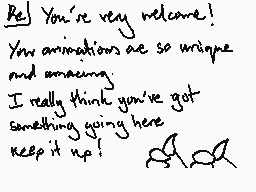 Re/ You're very welcome!
Your animations are so unique
and amazing.
I really think you've got
something going here
keep it up!